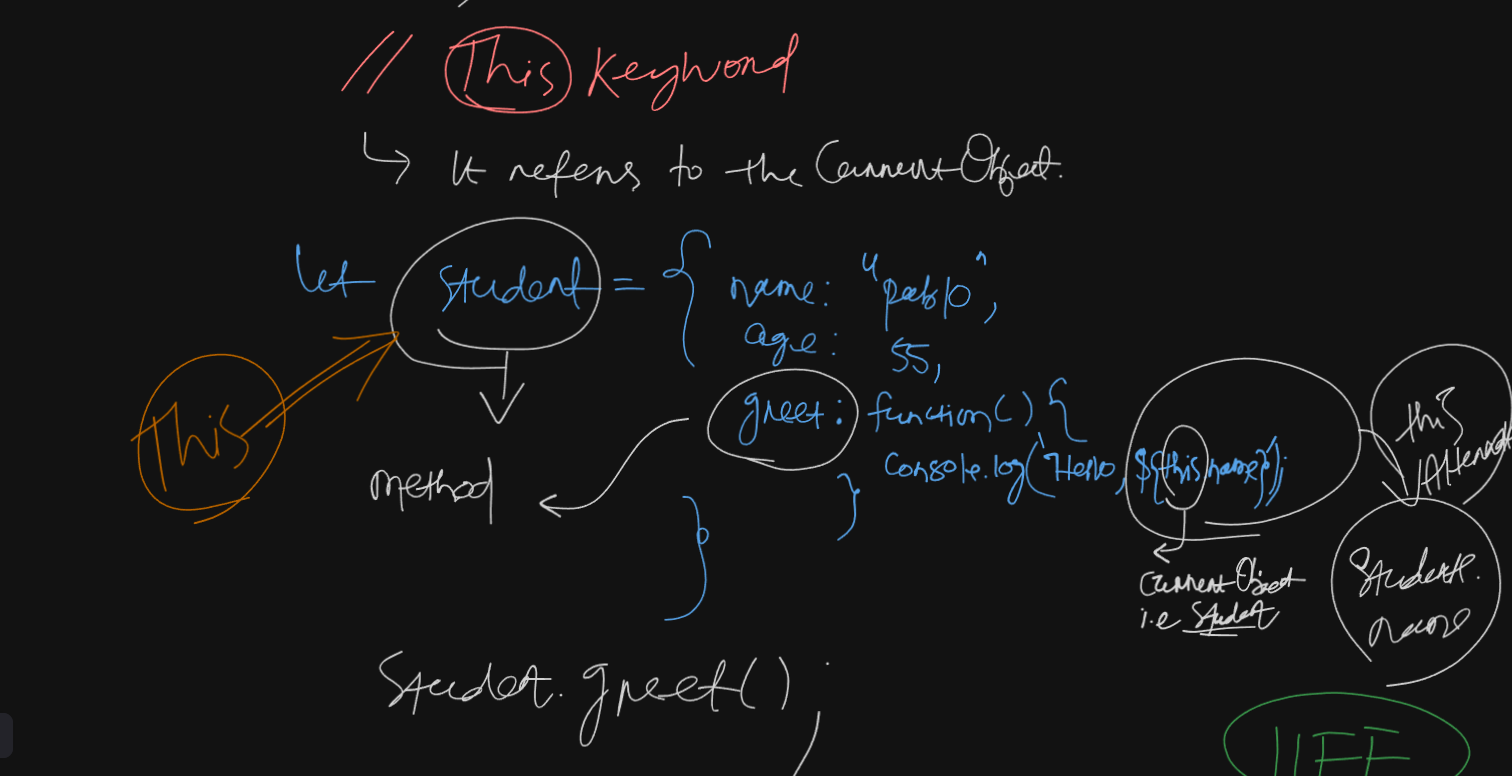 // This Keyword
↳ It refers to the Current Object.
let student = { name: "pablo",
age: 55,
greet: function() {
console.log(`Hello, ${this.name}`);
}
}
This
method
Current Object
i.e Student
this
Student.
name
Studet.greet();